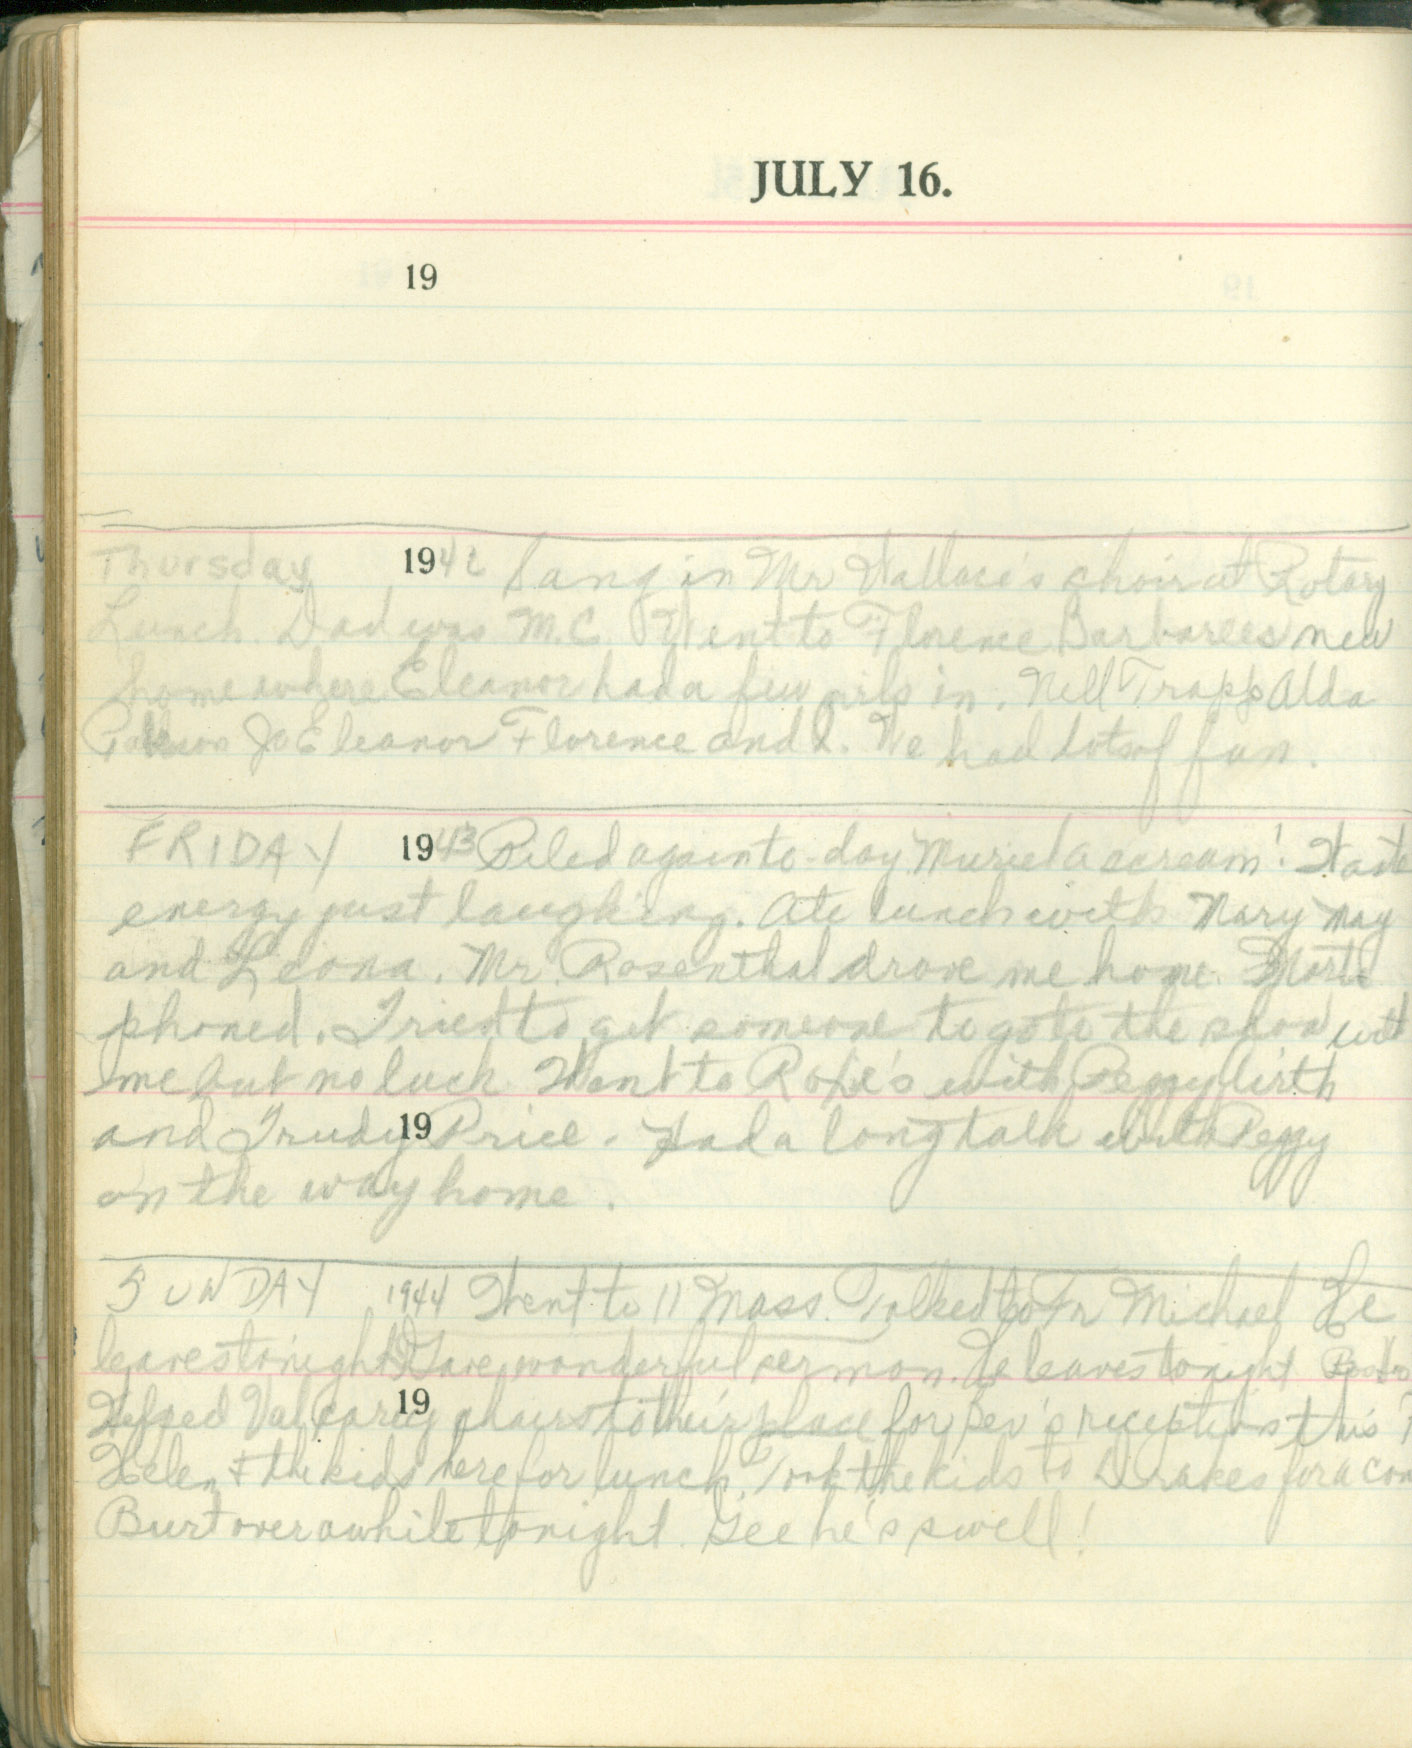 JULY 16.
19
Thursday 1942 Sang in Mr Wallace's choir at Rotary
Lunch. Dad was M.C. Went to Florence Barbarees new
home where Eleanor had a few girls in. Nell Trapp Alda
Jo Eleanor Florence and I. We had lots of fun.
FRIDAY 1943 Filed again to-day Muriel a scream!
energy just laughing. Ate lunch with Mary May
and Leona. Mr. Rosenthal drove me home.
phoned. Tried to get someone to go to the show with
me but no luck. Went to with Peggy Firth
19
and Trudy Price. Had a long talk with Peggy
on the way home.
SUNDAY 1944 Went to 11 Mass. Talked to Fr Michael He
leaves tonight Gave wonderful sermon. He leaves tonight
19
Helped Val carry chairs to their place for Bev's reception this
Helen & the kids here for lunch. Took the kids to Drakes for a
Burt over awhile tonight. Gee he's swell!